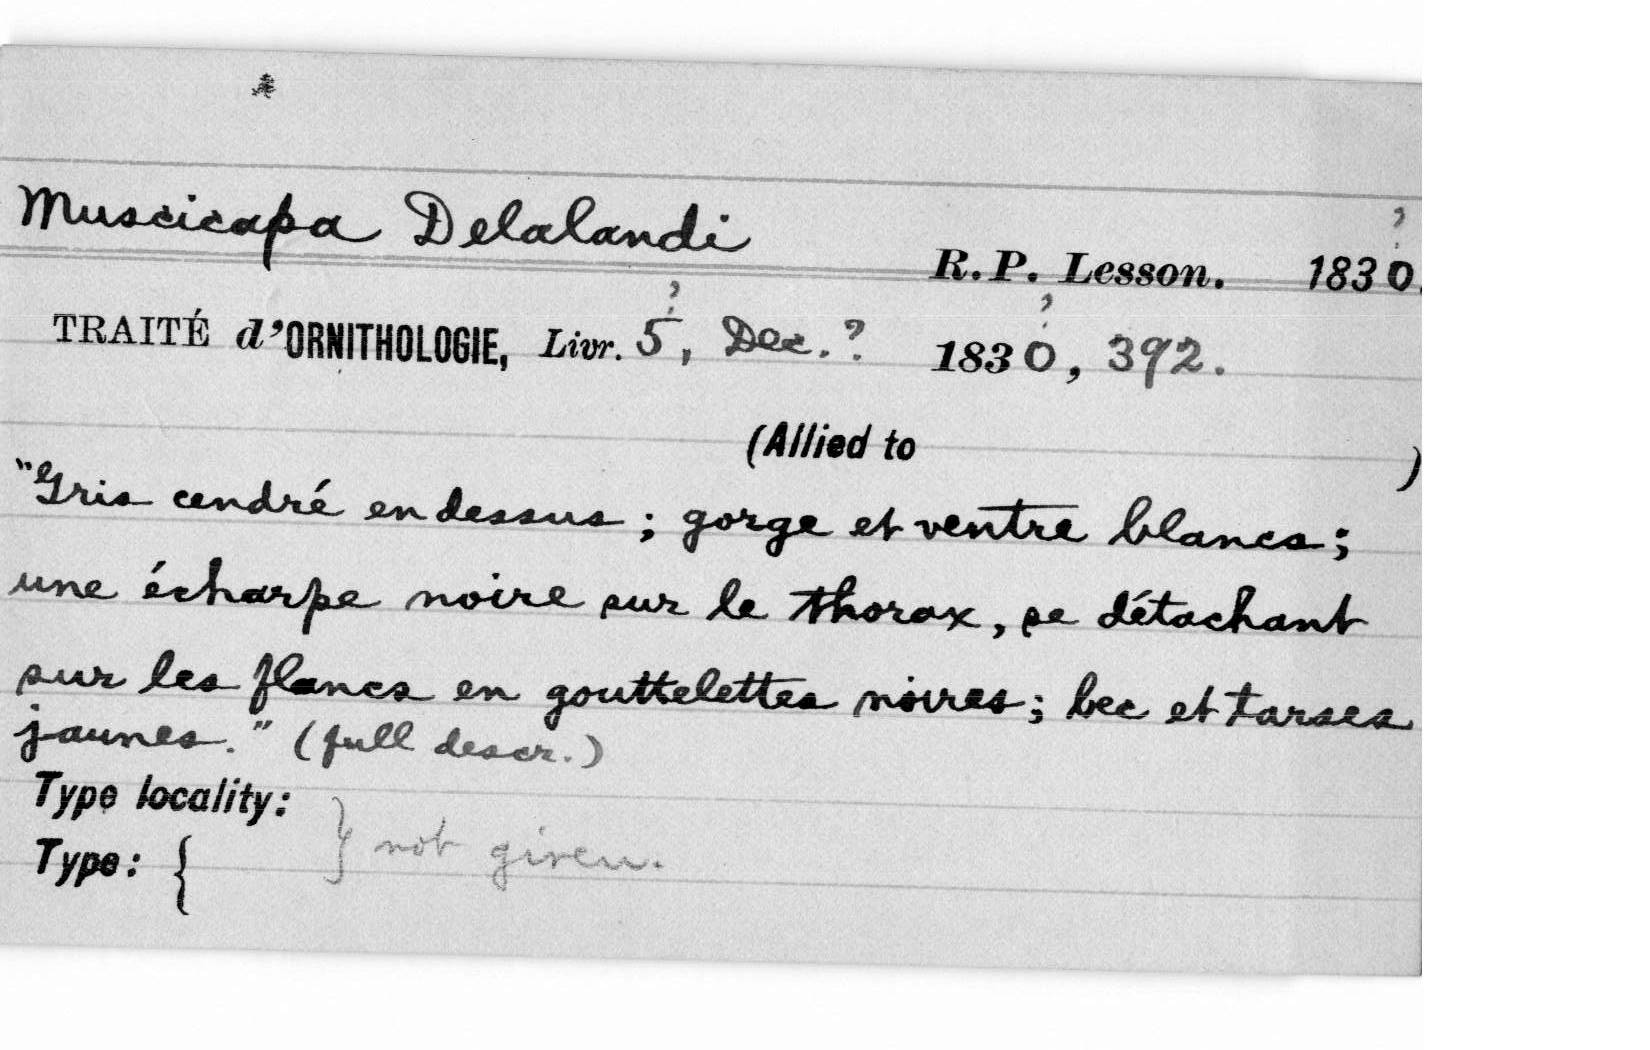 ?
Muscicapa Delalandi R. P. Lesson. 1830.
? ?
TRAITÉ d'ORNITHOLOGIE, Livr. 5, Dec.? 1830, 392.
(Allied to )
"Gris cendré en dessus; gorge et ventre blancs;
une écharpe noire sur le thorax, se détachant
sur les flancs en gouttelettes noires; bec et tarses
jaunes." (full descr.)
Type locality:
Type: { } not given.